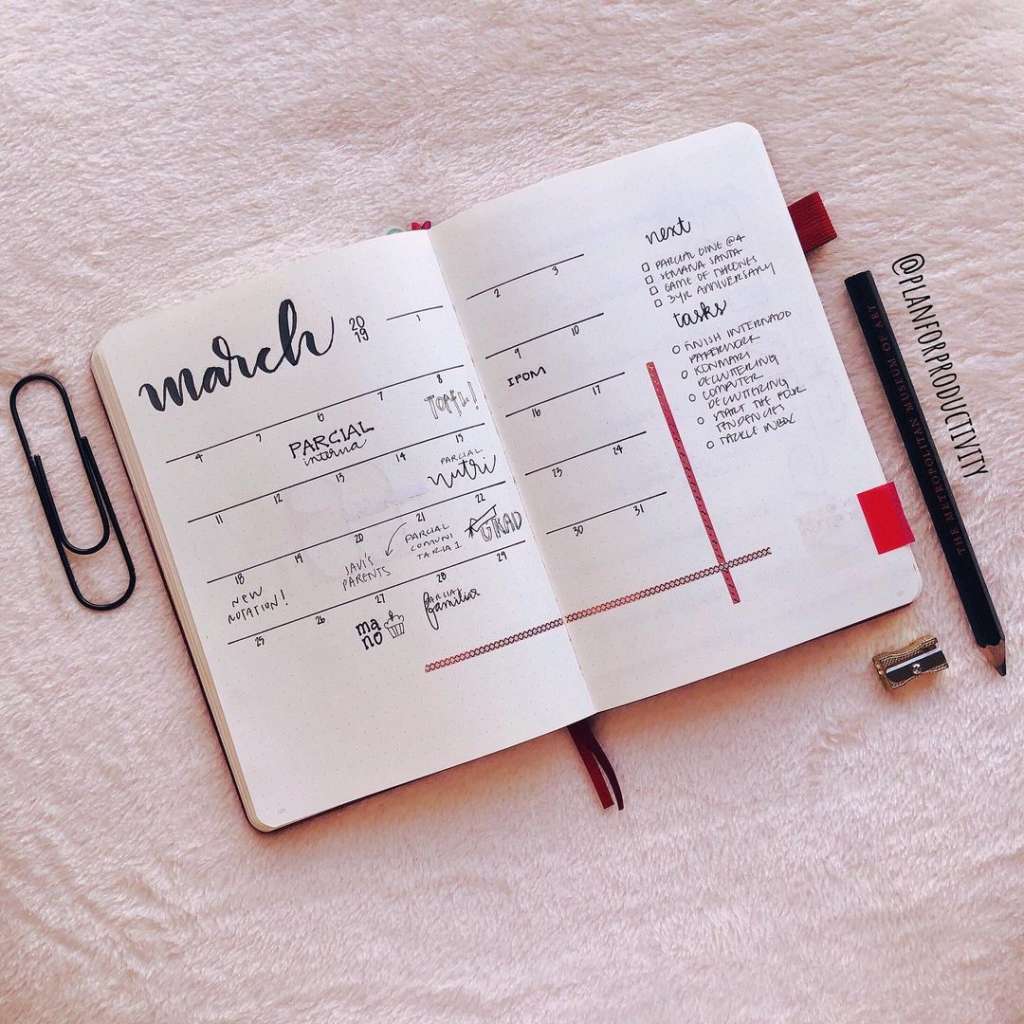 march
20
19
1
4 5 6 7 8
PARCIAL
interna
11 12 13 14 15
PARCIAL
nutri
18 19 20 21 22
NEW
ROTATION!
JAVI'S
PARENTS
PARCIAL
COMUNI
TARIA 1
25 26 27 28 29
ma
no
PARCIAL
familiar
2 3
9 10
IPOM
16 17
23 24
30 31
next
PARCIAL GINE @4
SEMANA SANTA
GAME OF THRONES
3YR ANNIVERSARY
tasks
FINISH INTERNADO
PAPERWORK
KONMARI
DECLUTTERING
COMPUTER
DECLUTTERING
START THE FOUR
TENDENCIES
TACKLE INBOX
THE METROPOLITAN MUSEUM OF ART
@PLANFORPRODUCTIVITY